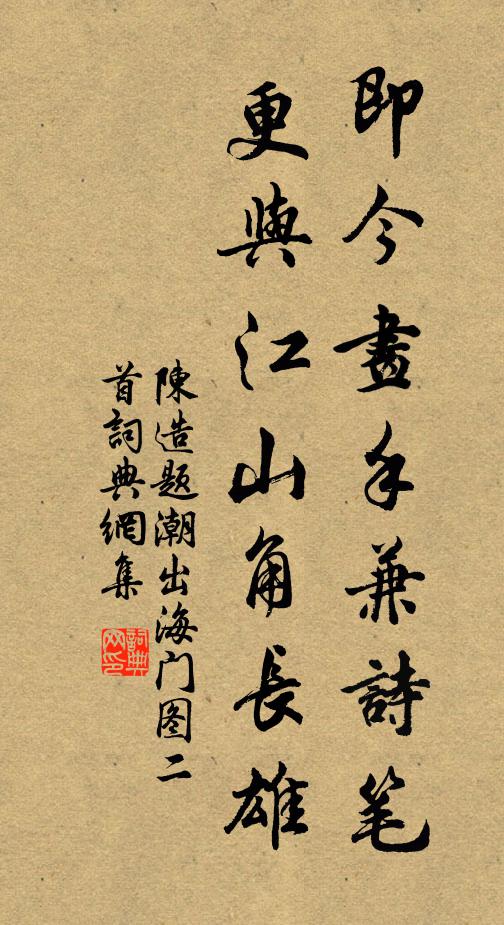 即今畫手兼詩笔
更與江山角長雄
陳造题潮出海门图二
首詞典網集
詞典
网印